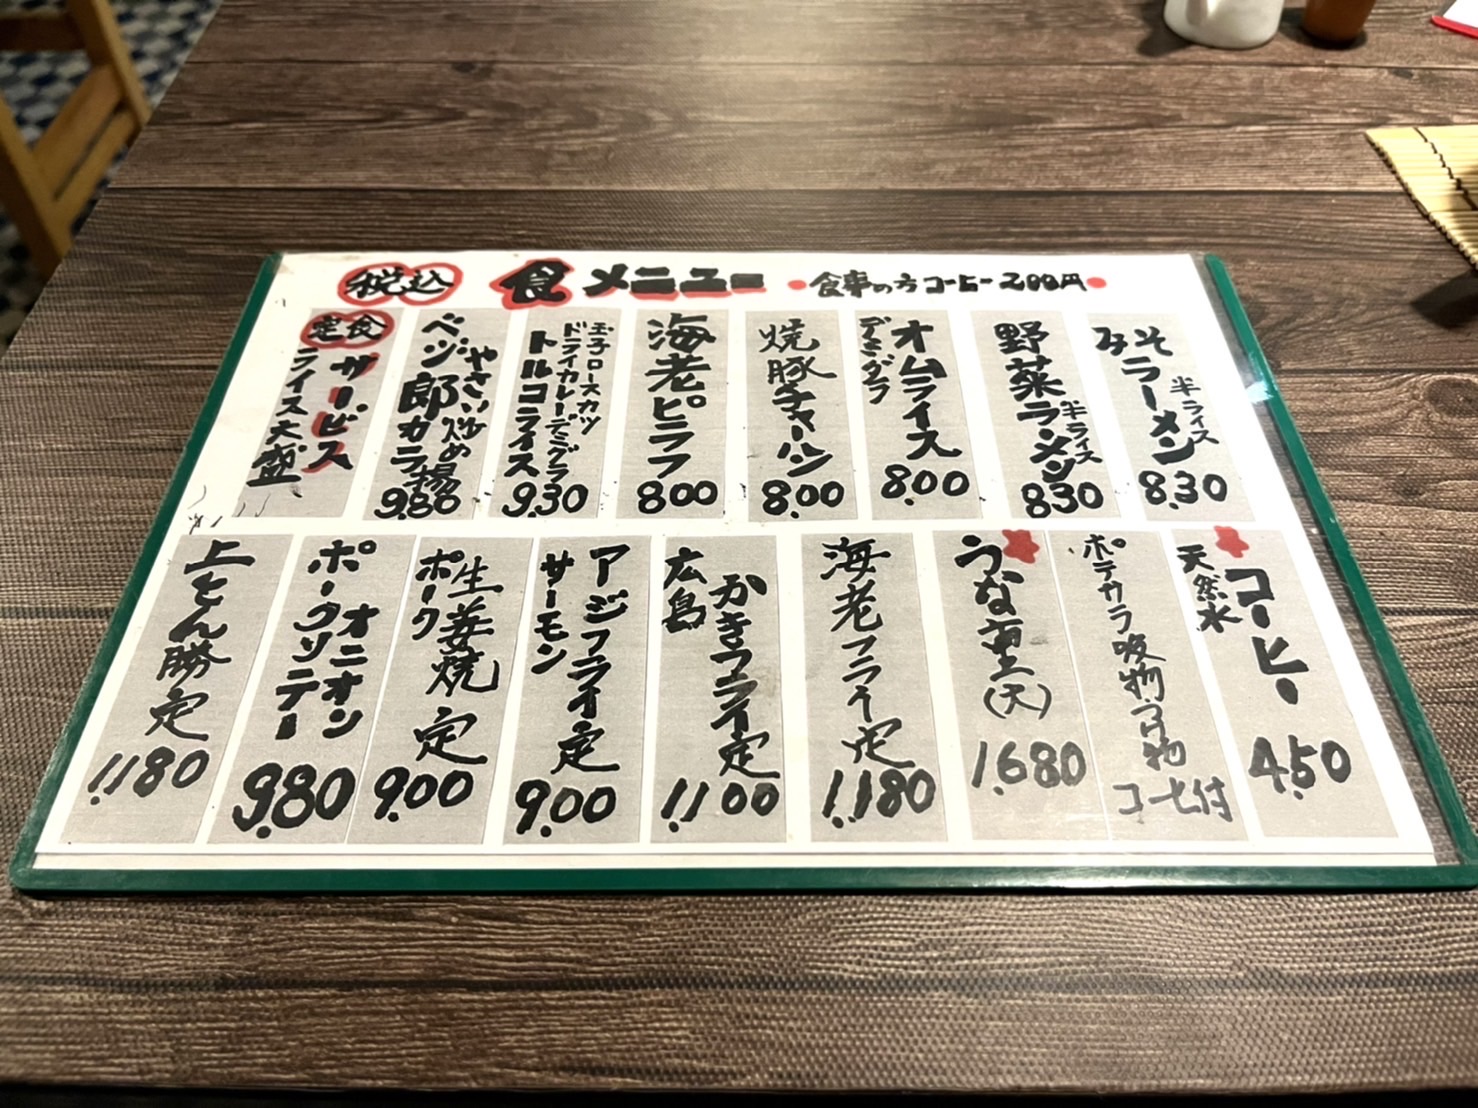 税込
食メニュー
・食事の方コーヒー200円・
みそラーメン
半ライス
8.30
野菜ラーメン
半ライス
8.30
オムライス
デミグラ
8.00
焼豚チャーハン
8.00
海老ピラフ
8.00
玉子ロースカツ
ドライカレーデミグラ
トルコライス
9.30
やさい炒め
ベジ郎カラ揚
9.80
定食
サービス
ライス大盛
コーヒー
天然水
4.50
うな重(大)
1.680
ポテサラ吸物
コーヒー付
海老フライ定
1.180
広島
かきフライ定
1.100
アジフライ定
サーモン
9.00
生姜焼定
ポーク
9.00
オニオン
ポークソテー
9.80
上とん勝定
1.180